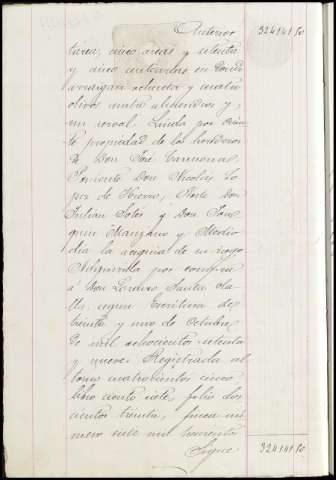 Anterior 324141 50
tareas, cinco áreas y setenta
y cinco centiareas en donde
arraigan ochenta y cuatro
olivos entre almendros y
un cerval. Linda por Orien
te propiedad de los herederos
de Don José Carmona,
Poniente Don Nicolás Ló
pez de Hierro, Norte Don
Julian Soles y Don Joa
quin Manzano y Medio
dia la acequia de su riego
Adquirida por compra
á Don Lorenzo Santa Ola
lla, segun Escritura de
treinta y uno de Octubre
de mil ochocientos setenta
y nueve. Registrada al
tomo cuatrocientos cinco
libro ciento siete, folio dos
cientos treinta, finca nú
mero siete mil
Sigue 324141 50